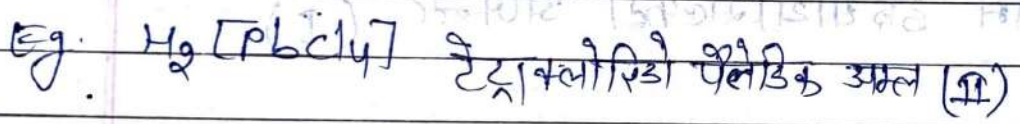 Eg. H₂[PbCl₄] टेट्राक्लोरिडो पैलेडिक अम्ल (II)